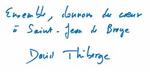 Ensemble, donnons du cœur
à Saint-Jean de Braye
David Thiberge